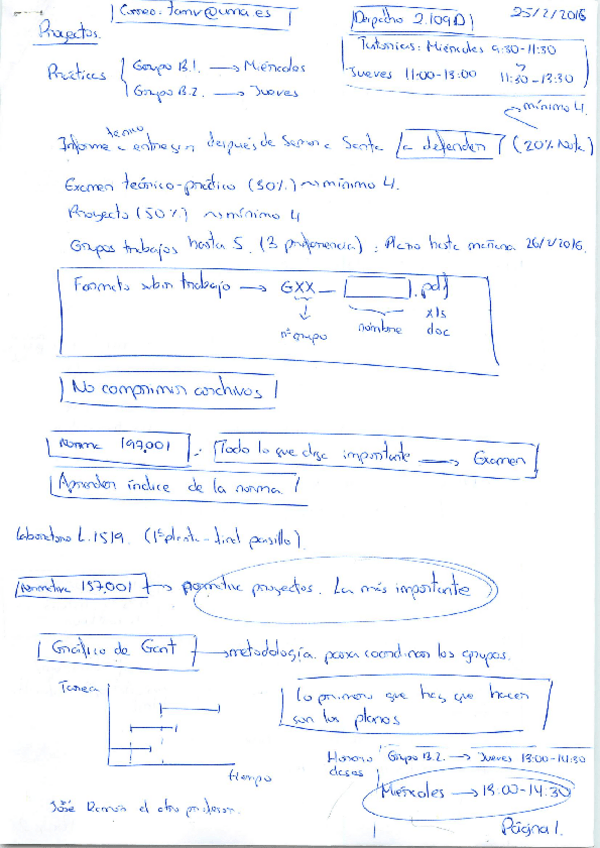 Correo-tomv@uma.es
Despacho 2.109D
25/2/2016
Proyectos.
Tutorías: Miércoles 9:30-11:30
Jueves 11:00-13:00 11:30-13:30
Prácticas
Grupo B.1. → Miércoles
Grupo B.2. → Jueves
mínimo 4.
Informe a entregar después de Semana Santa la defienden (20% Nota)
Examen teórico-prático (30%) mínimo 4.
Proyecto (50%) mínimo 4
Grupos trabajos hasta 5. (3 preferencia): Plazo hasta mañana 26/2/2016.
Formato subir trabajo → GXX_ .pdf
xls
doc
nº grupo
nombre
No comprimir archivos
Norma 197.001
Todo lo que dice importante → Examen
Aprender índice de la norma
Laboratorio L.1519. (1ª planta-final pasillo)
Normativa 157.001 → normativa proyectos. La más importante
Gráfico de Gant → metodología para coordinar los grupos.
Tarea
tiempo
Lo primero que hay que hacer
son los planos
Horario
clases
Grupo B.2. → Jueves 13:00-14:30
Miércoles → 13:00-14:30
José Ramón el otro profesor.
Página 1.